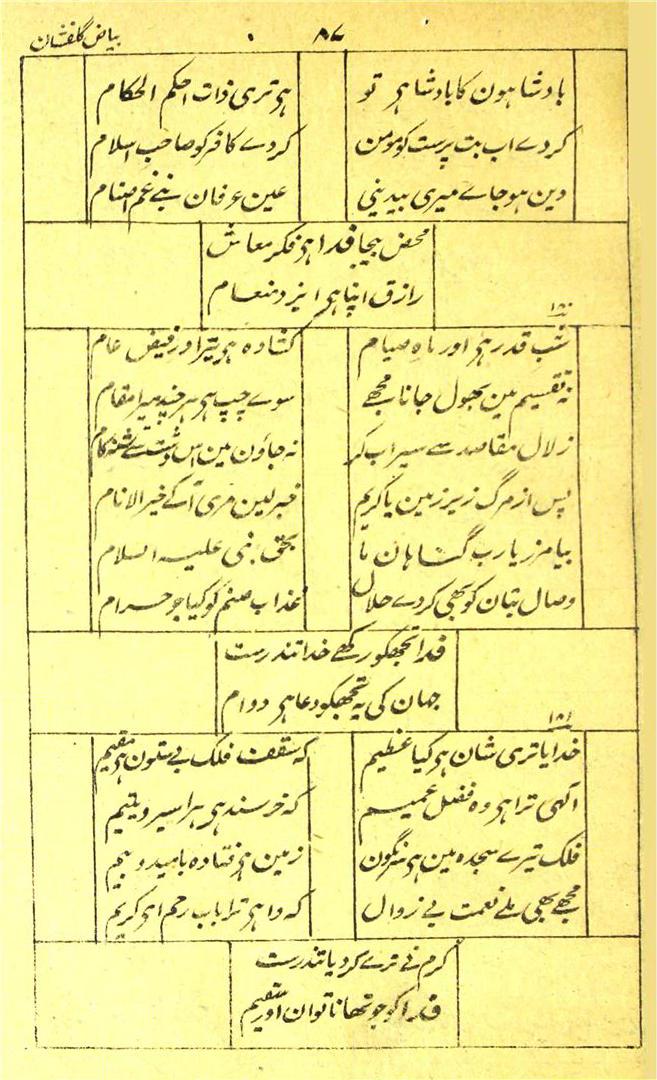 بیاض گلفشان
۸۷
بادشاہون کا بادشاہ ہی تو ہی تری ذات احکم الحکام
کردے اب بت پرست کو مومن کردے کافر کو صاحب اسلام
دین ہو جاے میری بیدینی عین عرفان بنے غم اصنام
محض بیجا فدا ہی فکر معاش
رازق اپنا ہی ایزد منعام
۱۸۰
شب قدر ہی اور ماہ صیام کشادہ ہی تیرا در فیض عام
نہ تقسیم مین بھول جانا مجھے سوے چپ ہی ہر چند میرا مقام
زلال مقاصد سے سیراب کر نہ جاؤن مین اس دشت سے تشنہ کام
پس از مرگ زیر زمین یا کریم خبر لین مری آکے خیر الانام
بیامرز یارب گناہان ما بحق نبی علیہ السلام
وصال بتان کو بھی کردے حلال عذاب صنم کو کیا جو حرام
فدا تجھکو رکھے خدا تندرست
جہان کی یہ تجھکو دعا ہی دوام
۱۸۱
خدایا تری شان ہی کیا عظیم کہ سقف فلک بے ستون ہی مقیم
الٰہی ترا ہی وہ فضل عمیم کہ خرسند ہی ہر اسیر و یتیم
فلک تیرے سجدہ مین ہی سرنگون زمین ہی فتادہ بامید و بیم
مجھے بھی ملے نعمت بے زوال کہ وا ہی ترا باب رحم ای کریم
کرم نے ترے کر دیا تندرست
فدا کو جو تھا ناتوان اور سقیم